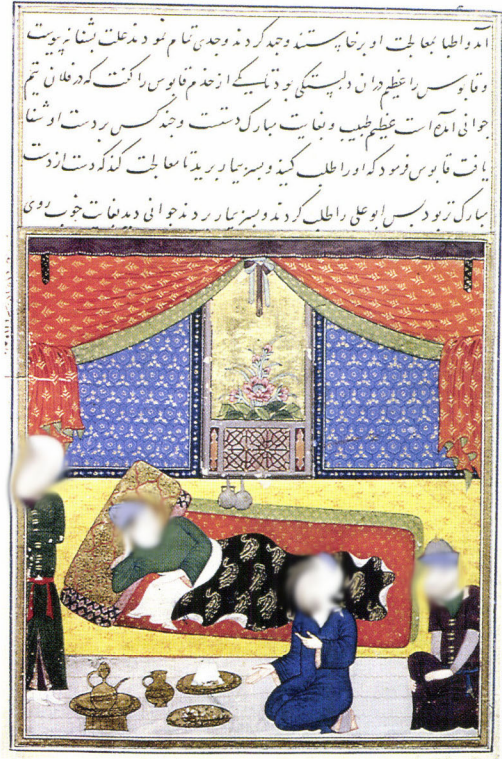 آمد و اطبا بمعالجت او برخاستند و جهد کردند و جدی تمام نمودند علت بشفا نپیوست
و قابوس را عظیم در آن دلبستگی بود تا یکی از خدم قابوس را گفت که در فلان تیم
جوانی آمده است عظیم طبیب و بغایت مبارک دست و چند کس بر دست او شفا
یافت قابوس فرمود که او را طلب کنید و بسر بیمار برید تا معالجت کند که دست از دست
مبارک تر بود پس ابو علی را طلب کردند و بسر بیمار بردند جوانی دید بغایت خوب روی